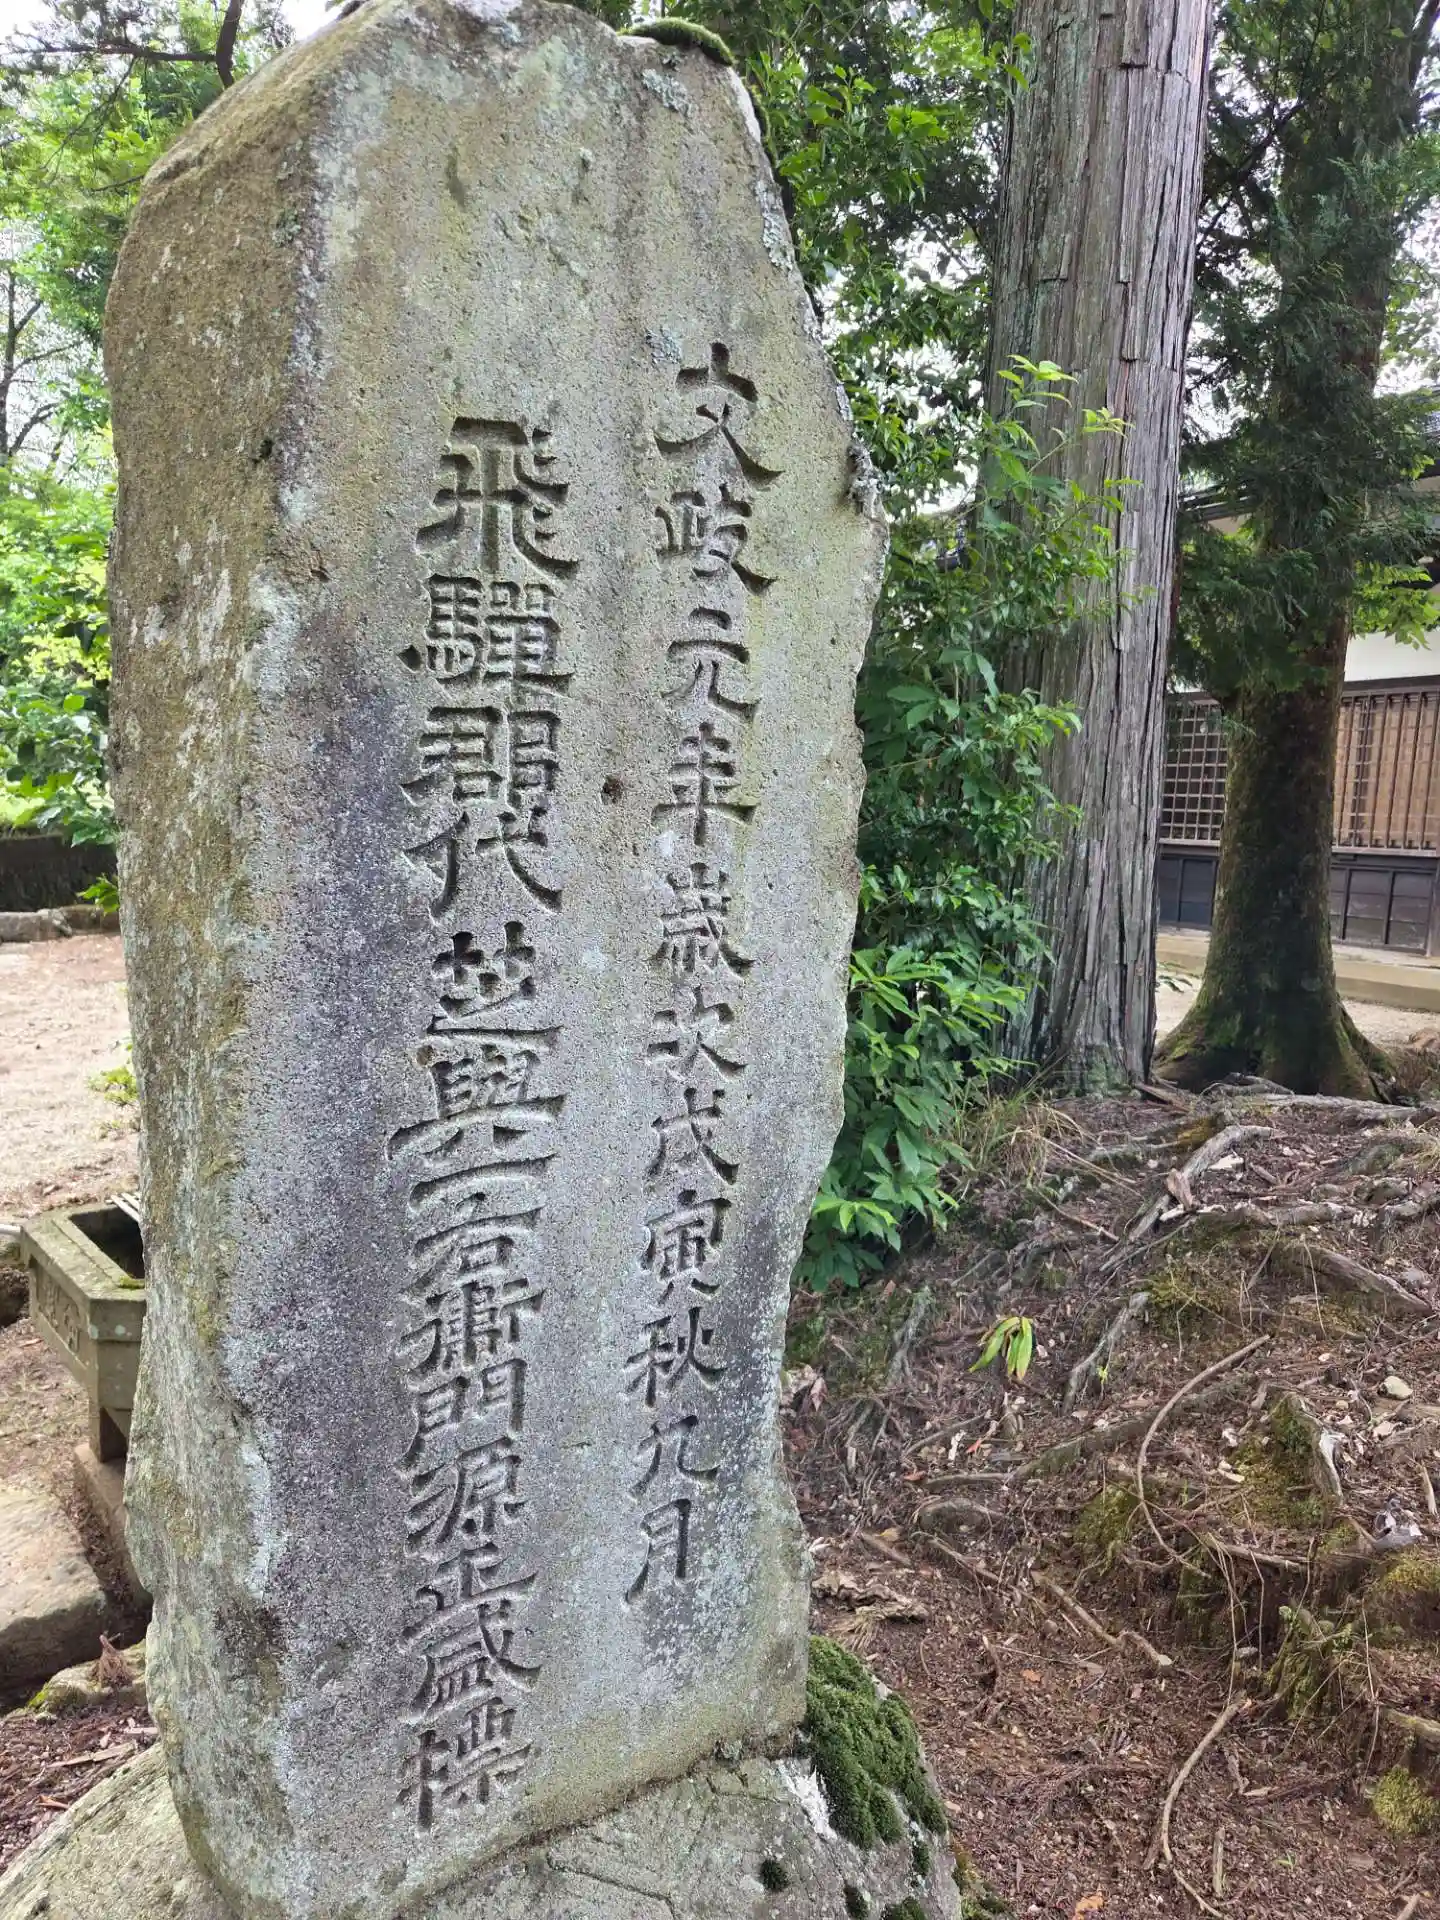 文政元年歳次戊寅秋九月
飛驒郡代芝與一右衛門源正盛標